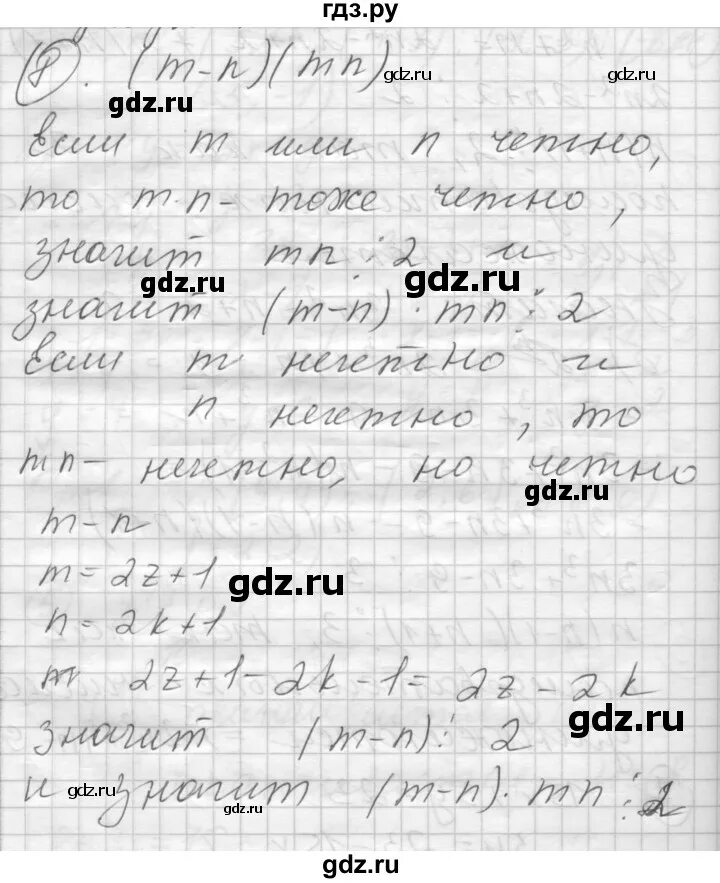 гдз.ру
8. (m-n)(mn)
gdz.ru
gdz.ru
gdz.ru
Если m или n четно,
то m·n- тоже четно,
значит mn ⋮ 2 и
gdz.ru
gdz.ru
значит (m-n)·mn ⋮ 2
Если m нечетно и
n нечетно, то
mn- нечетно, но четно
gdz.ru
m-n
m=2z+1
gdz.ru
n=2k+1
2z+1-2k-1=2z-2k
gdz.ru
значит (m-n) ⋮ 2
и значит (m-n)·mn ⋮ 2
gdz.ru
gdz.ru
gdz.ru
gdz.ru